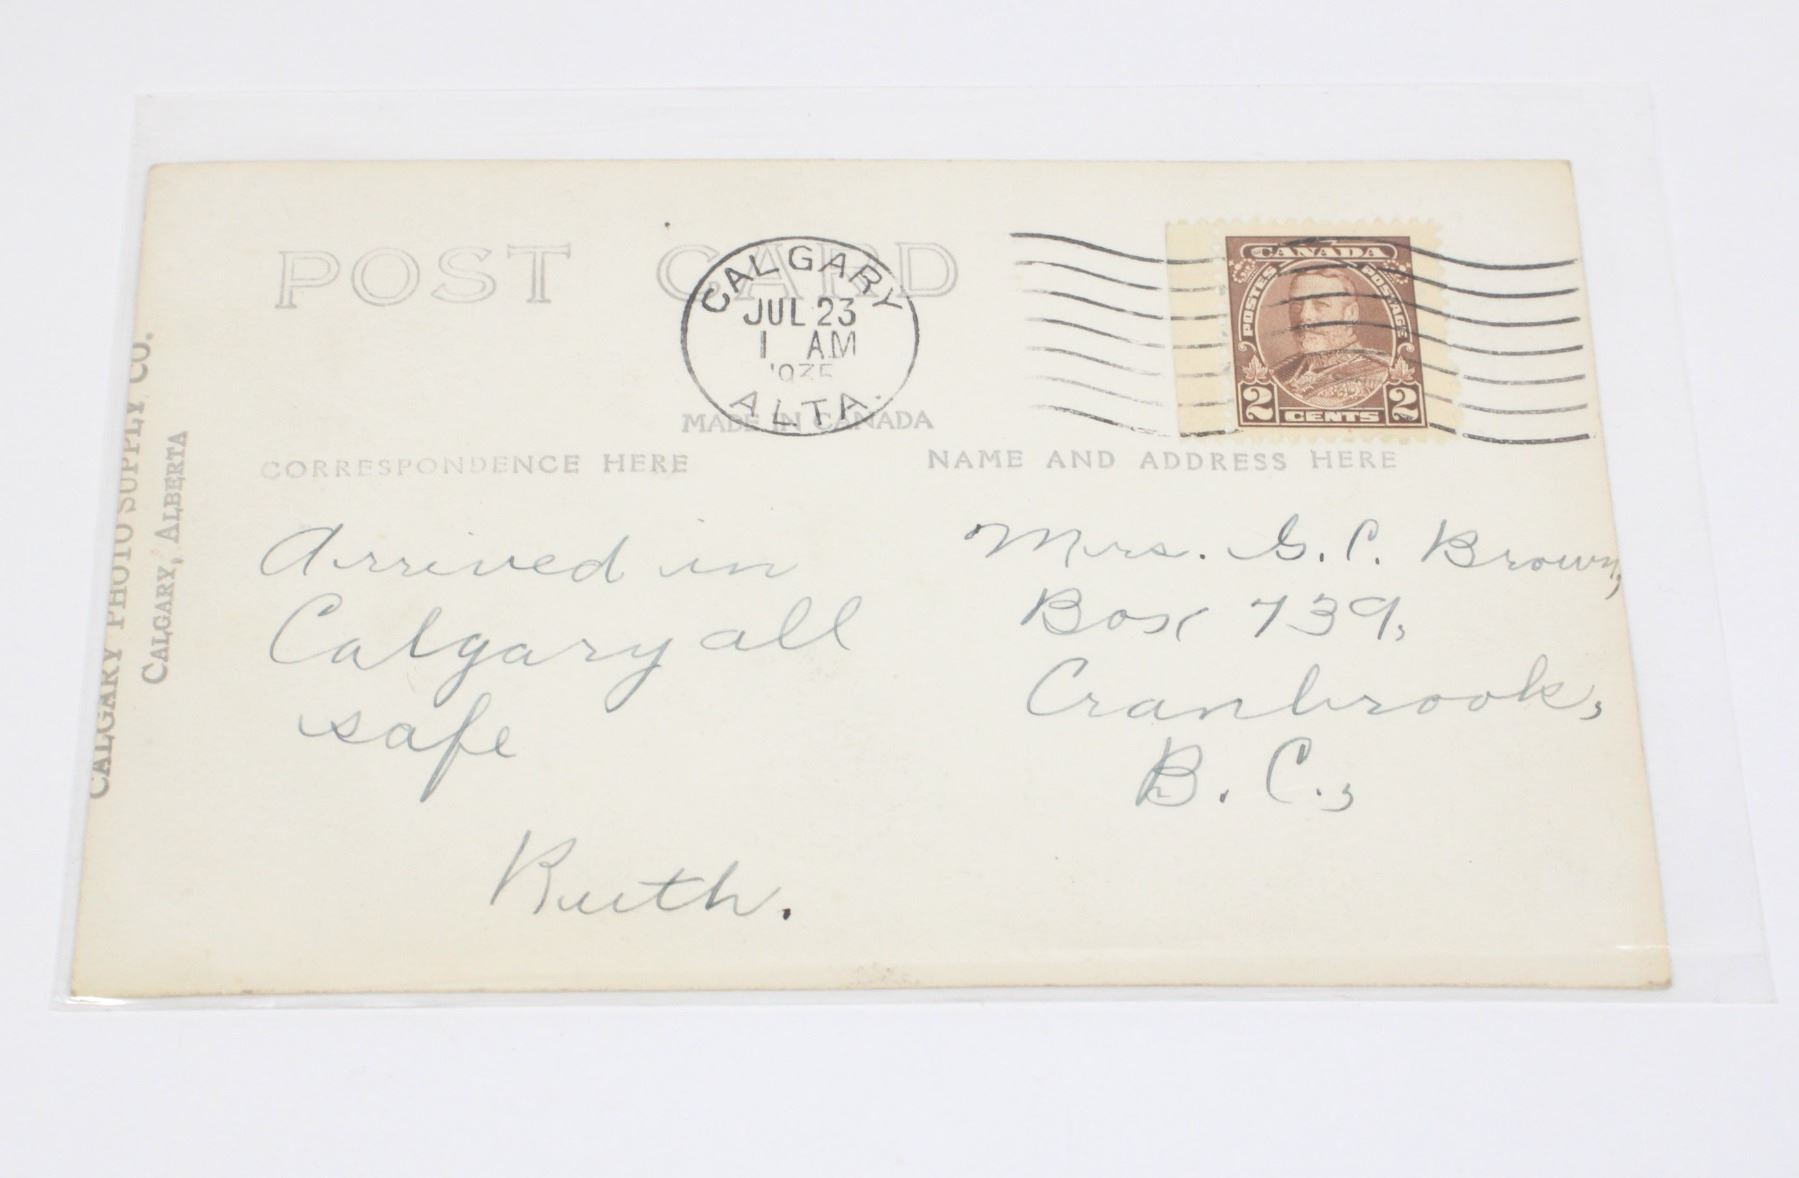 POST CARD
CALGARY
JUL 23
1 AM
1935
ALTA.
CANADA
POSTES POSTAGE
2 CENTS 2
MADE IN CANADA
CORRESPONDENCE HERE
NAME AND ADDRESS HERE
CALGARY PHOTO SUPPLY CO.
CALGARY, ALBERTA
Arrived in
Calgary all
safe
Ruth.
Mrs. G. C. Brown,
Box 739,
Cranbrook,
B. C.,